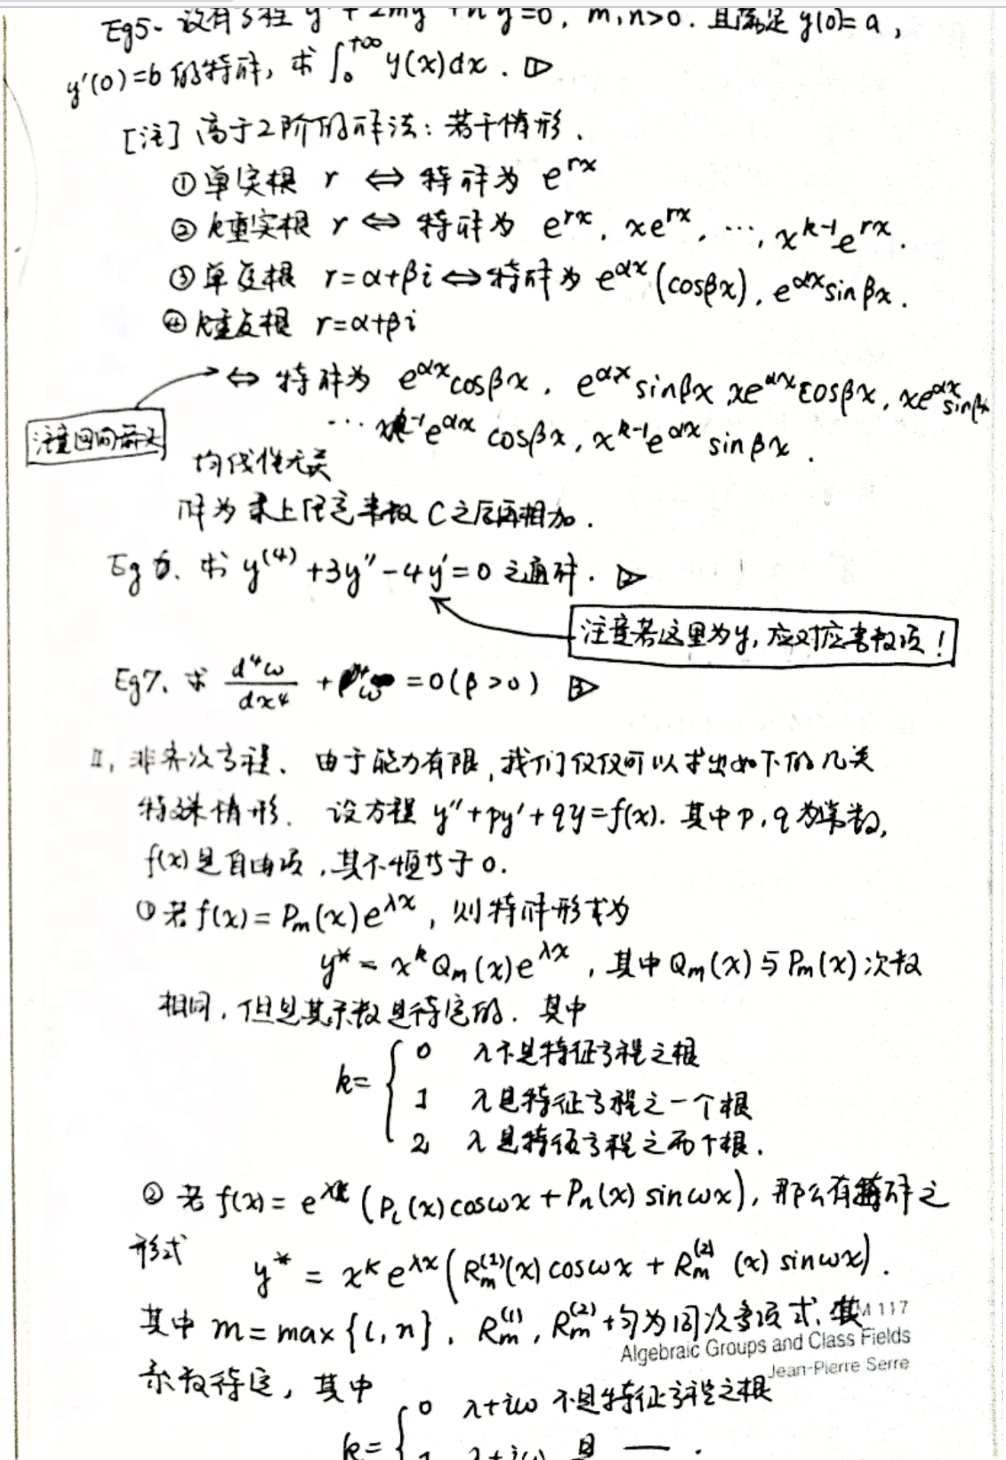 Eg5. 设有方程 y''+2my'+n²y=0, m,n>0. 且满足 y(0)=a,
y'(0)=b 的特解, 求 ∫₀^{+∞} y(x)dx. ▷
[注] 高于2阶的解法: 若干情形.
① 单实根 r ⇔ 特解为 e^{rx}
② k重实根 r ⇔ 特解为 e^{rx}, xe^{rx}, ⋯, x^{k-1}e^{rx}.
③ 单复根 r=α+βi ⇔ 特解为 e^{αx}(cosβx), e^{αx}sinβx.
④ k重复根 r=α+βi
⇔ 特解为 e^{αx}cosβx, e^{αx}sinβx, xe^{αx}cosβx, xe^{αx}sinβx
⋯ x^{k-1}e^{αx}cosβx, x^{k-1}e^{αx}sinβx.
注意
均线性无关
解为乘上任意常数 C 之后再相加.
Eg 6. 求 y^{(4)}+3y''-4y'=0 之通解. ▷
注意若这里为y, 应对应常数项!
Eg7. 求 d⁴ω/dx⁴ + β⁴ω =0 (β>0) ▷
II, 非齐次方程. 由于能力有限, 我们仅仅可以求出如下的几类
特殊情形. 设方程 y''+py'+qy=f(x). 其中 p, q 为常数,
f(x)是自由项, 其不恒等于0.
① 若 f(x)=P_m(x)e^{λx}, 则特解形式为
y*=x^k Q_m(x)e^{λx}, 其中 Q_m(x)与P_m(x)次数
相同, 但是其系数是待定的. 其中
k= { 0 λ不是特征方程之根
1 λ是特征方程之一个根
2 λ是特征方程之两个根.
② 若 f(x)=e^{λx}(P_l(x)cosωx+P_n(x)sinωx), 那么有特解之
形式 y*=x^k e^{λx}(R_m^{(1)}(x)cosωx+R_m^{(2)}(x)sinωx).
其中 m=max{l,n}, R_m^{(1)}, R_m^{(2)} 均为同次多项式, 其
M 117
Algebraic Groups and Class Fields
Jean-Pierre Serre
系数待定, 其中
k= { 0 λ+iω 不是特征方程之根
1 λ+iω 是 —— .